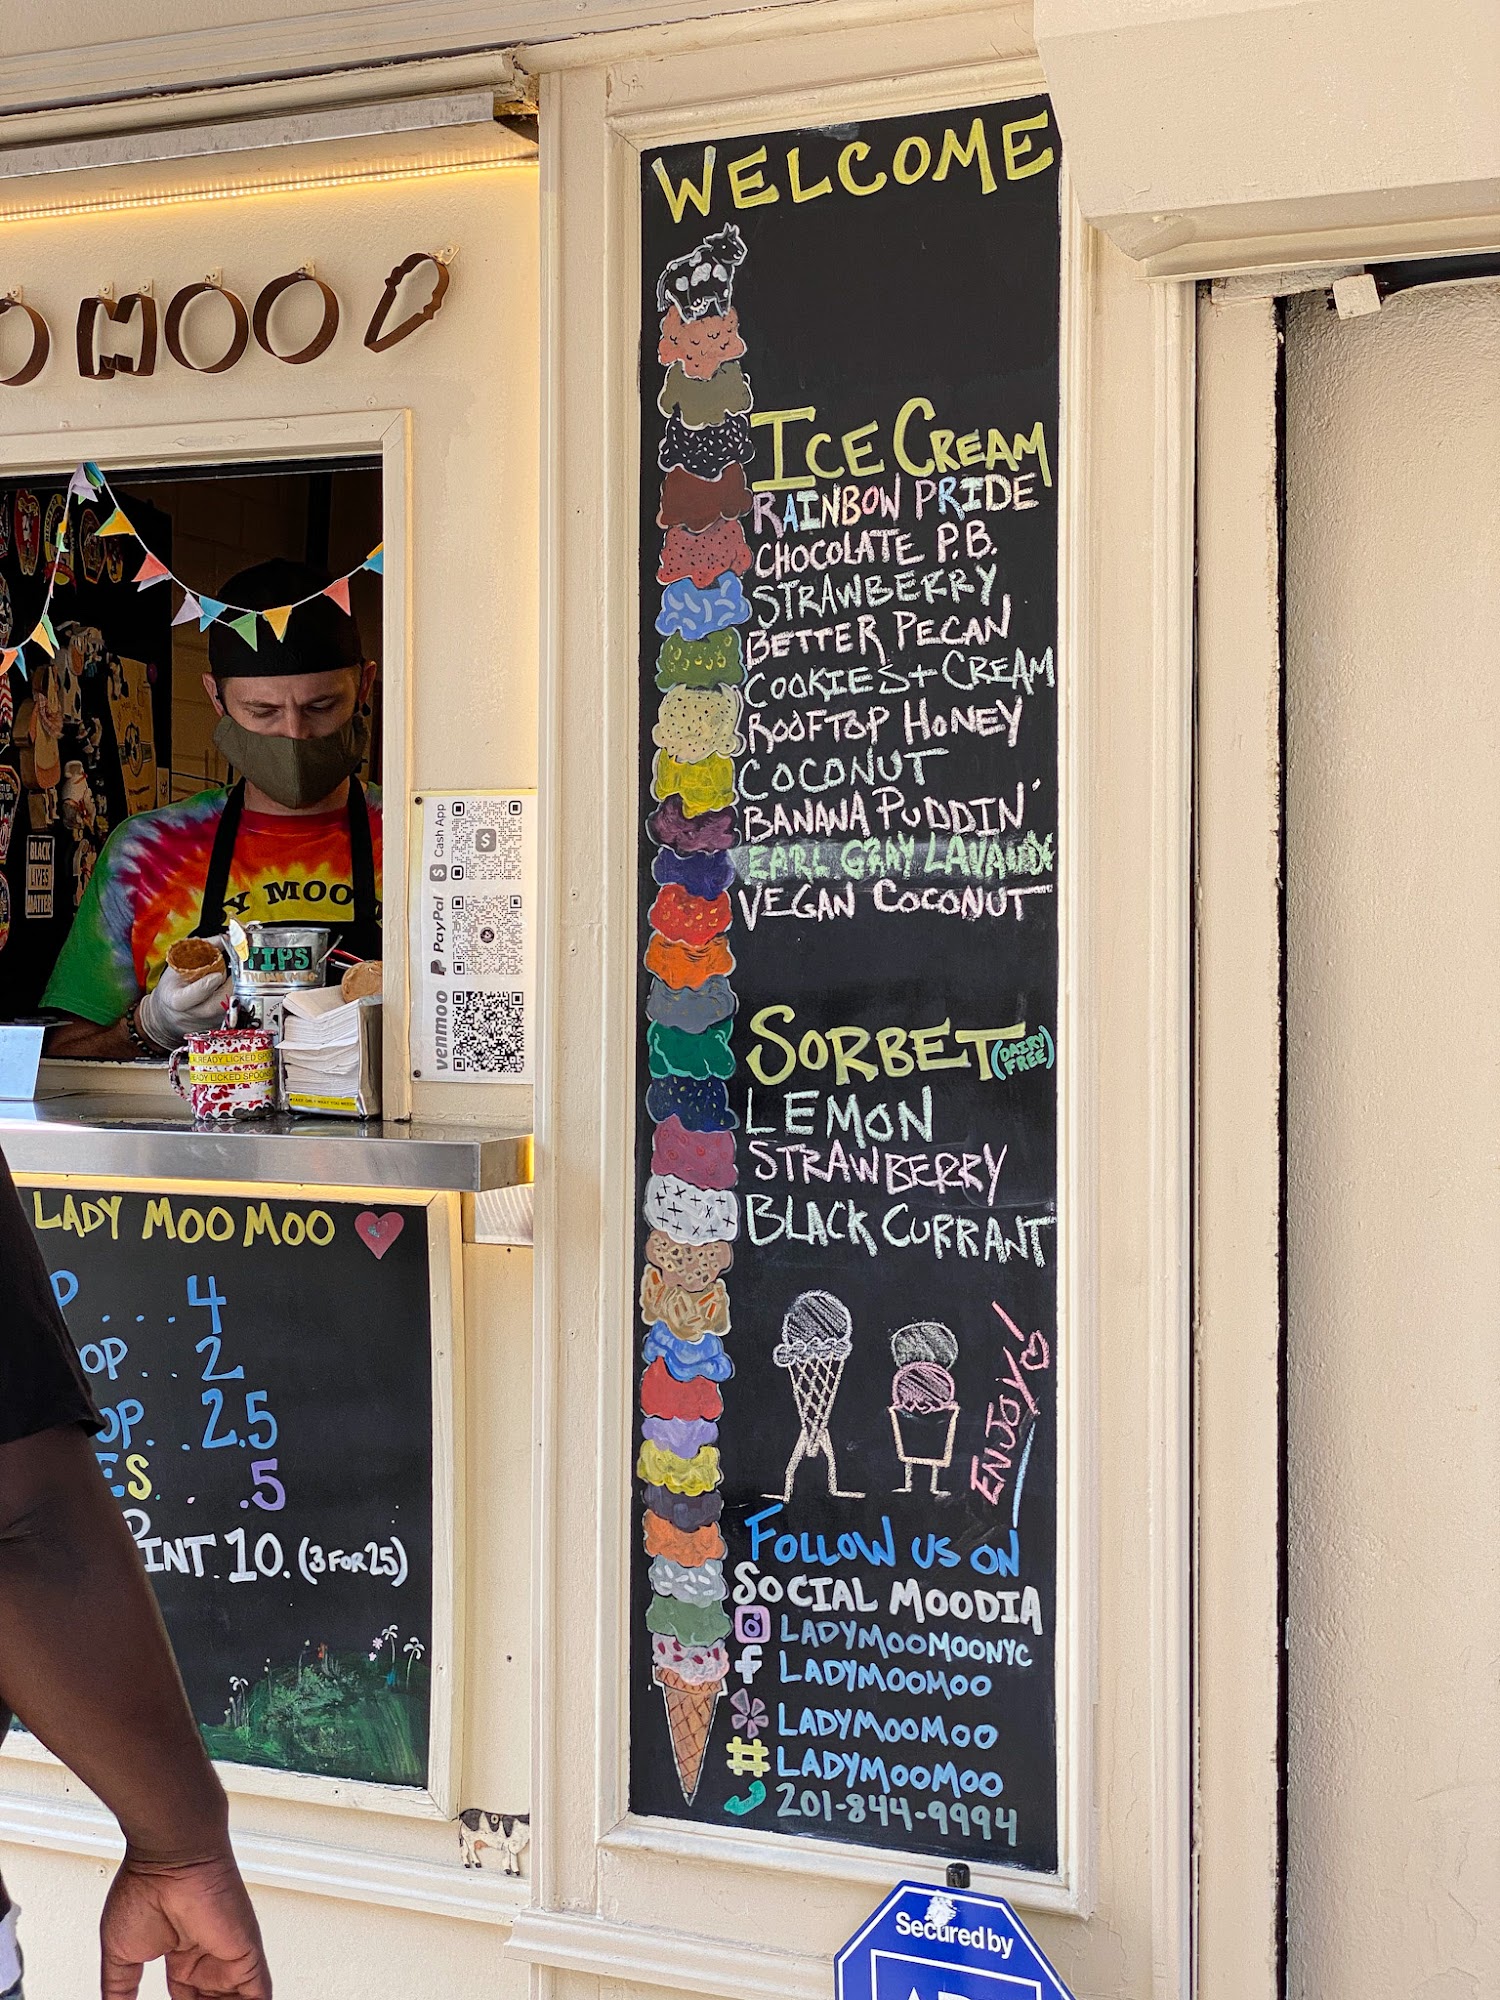 MOO
BLACK
LIVES
MATTER
Y MOO
TIPS
Cash App
PayPal
venmoo
ALREADY LICKED SPOONS
LADY MOO MOO
4
OP.. 2
OP. .2.5
ES. . .5
INT. 10. (3 FOR 25)
WELCOME
ICE CREAM
RAINBOW PRIDE
CHOCOLATE P.B.
STRAWBERRY
BETTER PECAN
COOKIES + CREAM
ROOFTOP HONEY
COCONUT
BANANA PUDDIN'
EARL GRAY
VEGAN COCONUT
SORBET (DAIRY FREE)
LEMON
STRAWBERRY
BLACK CURRANT
ENJOY!
FOLLOW US ON
SOCIAL MOODIA
LADYMOOMOONYC
f LADYMOOMOO
LADYMOOMOO
# LADYMOOMOO
201-844-9994
Secured by